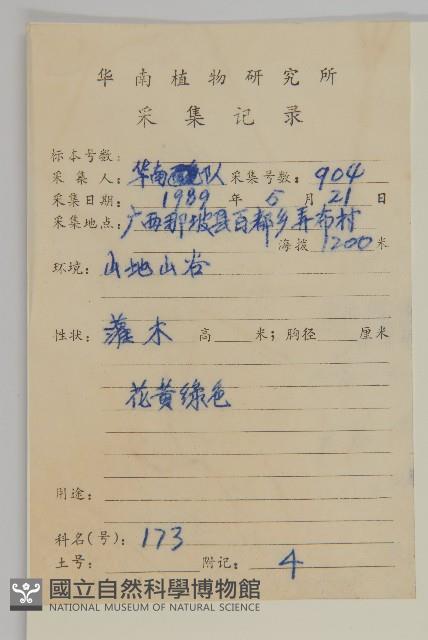 华南植物研究所
采集记录
标本号数:
采集人: 华南队 采集号数: 904
采集日期: 1989 年 5 月 21 日
采集地点: 广西那坡县百都乡弄布村
海拨 1200 米
环境: 山地山谷
性状: 灌木 高 米; 胸径 厘米
花黄绿色
用途:
科名(号): 173
土号: 附记: 4
國立自然科學博物館
NATIONAL MUSEUM OF NATURAL SCIENCE